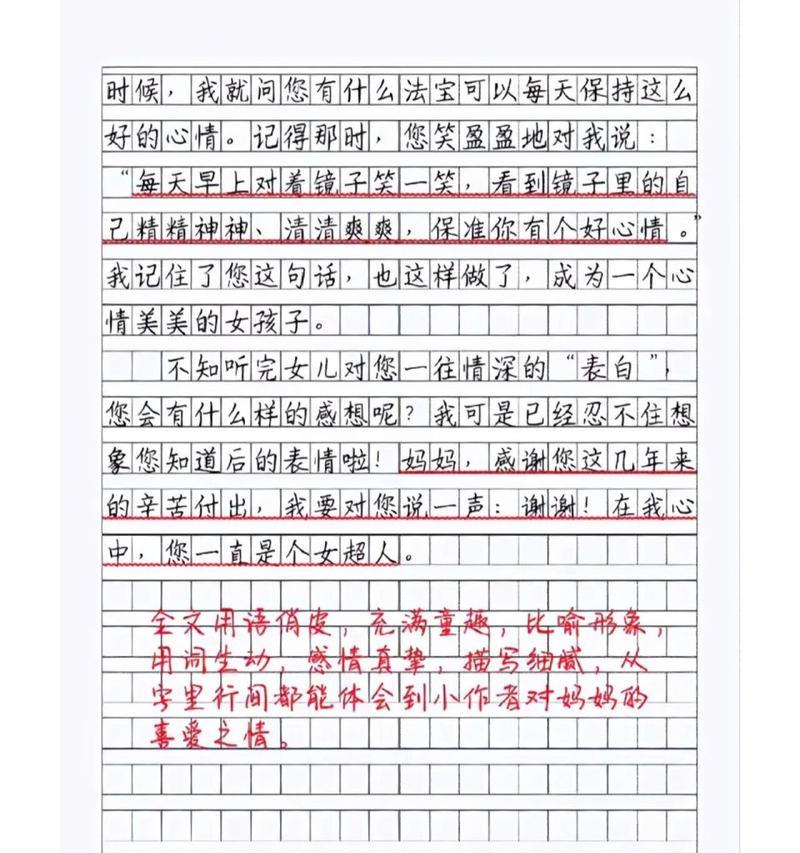 时候，我就问您有什么法宝可以每天保持这么
好的心情。记得那时，您笑盈盈地对我说：
“每天早上对着镜子笑一笑，看到镜子里的自
己精精神神、清清爽爽，保准你有个好心情。”
我记住了您这句话，也这样做了，成为一个心
情美美的女孩子。
不知听完女儿对您一往情深的“表白”，
您会有什么样的感想呢？我可是已经忍不住想
象您知道后的表情啦！妈妈，感谢您这几年来
的辛苦付出，我要对您说一声：谢谢！在我心
中，您一直是个女超人。
全文用语俏皮，充满童趣，比喻形象，
用词生动，感情真挚，描写细腻，从
字里行间都能体会到小作者对妈妈的
喜爱之情。